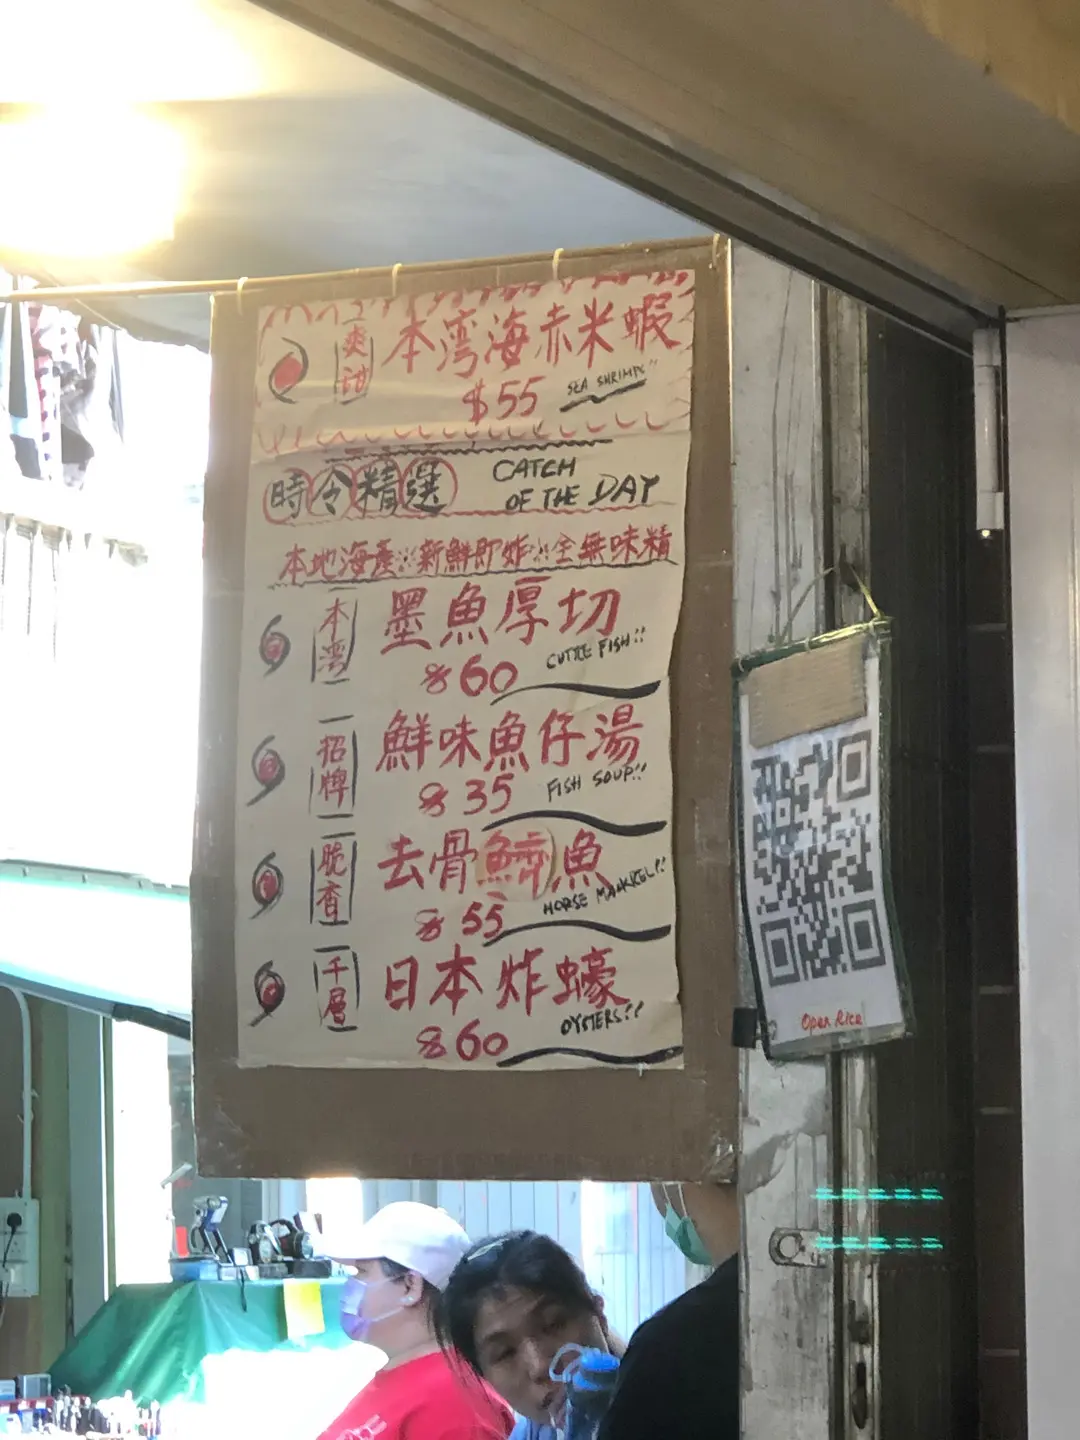 爽甜 本湾海赤米蝦
$55 SEA SHRIMPS!!
時令精選 CATCH OF THE DAY
本地海產※新鮮即炸※全無味精
本湾 墨魚厚切
$60 CUTTLE FISH!!
招牌 鮮味魚仔湯
$35 FISH SOUP!!
脆香 去骨鰽魚
$55 HORSE MAAKREL!!
千層 日本炸蠔
$60 OYSTERS!!
Open Rice